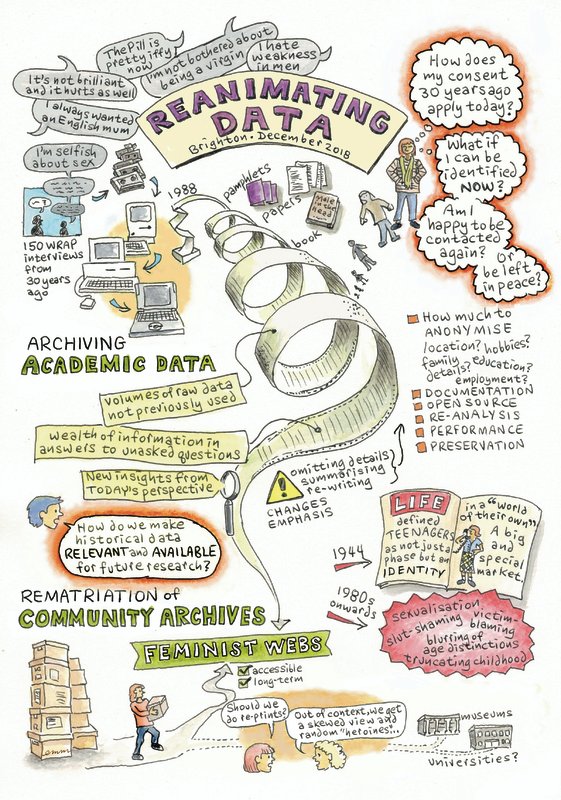 The Pill is
pretty iffy
now
I'm not bothered about
being a virgin
I hate
weakness
in men
It's not brilliant
and it hurts as well
I always wanted
an English mum
I'm selfish
about sex
REANIMATING
DATA
Brighton. December 2018
How does
my consent
30 years ago
apply today?
What if
I can be
identified
NOW?
Am I
happy to be
contacted
again?
or
be left
in peace?
150 WRAP
interviews
from
30 years
ago
1988
pamphlets
papers
Male
in the
head
book
ARCHIVING
ACADEMIC DATA
HOW much to
ANONYMISE
location? hobbies?
family education?
details?
employment?
DOCUMENTATION
OPEN SOURCE
RE-ANALYSIS
PERFORMANCE
PRESERVATION
volumes of raw data
not previously used
wealth of information in
answers to unasked questions
New insights from
TODAY's perspective
omitting details
summarising
re-writing
CHANGES
EMPHASIS
How do we make
historical data
RELEVANT and AVAILABLE
for future research?
1944
LIFE
defined
TEENAGERS
as not just a
phase but an
IDENTITY
in a "world
of their own"
A big
and
special
market.
1980s
onwards
sexualisation victim-
slut-shaming blaming
blurring of
age distinctions
truncating childhood
REMATRIATION of
COMMUNITY ARCHIVES
FEMINIST WEBS
accessible
long-term
Should we
do re-prints?
Out of context, we get
a skewed view and
random "heroines"...
museums
universities?